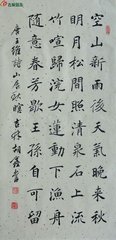 空山新雨後天氣晚来秋
明月松間照清泉石上流
竹喧歸浣女蓮動下漁舟
隨意春芳歇王孫自可留
唐王維詩山居秋暝